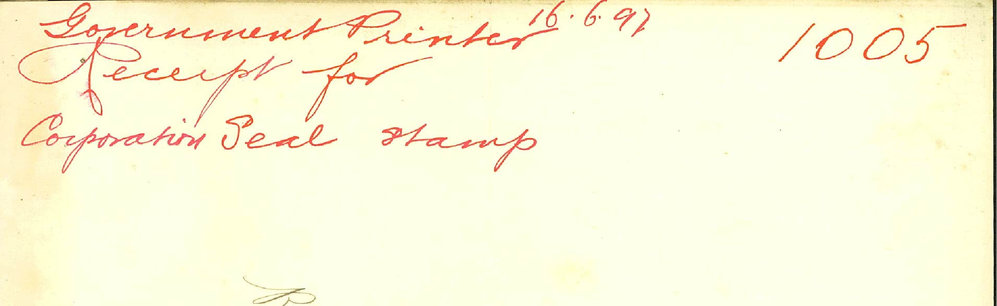 Government Printer 16.6.97 1005
Receipt for
Corporation Seal stamp